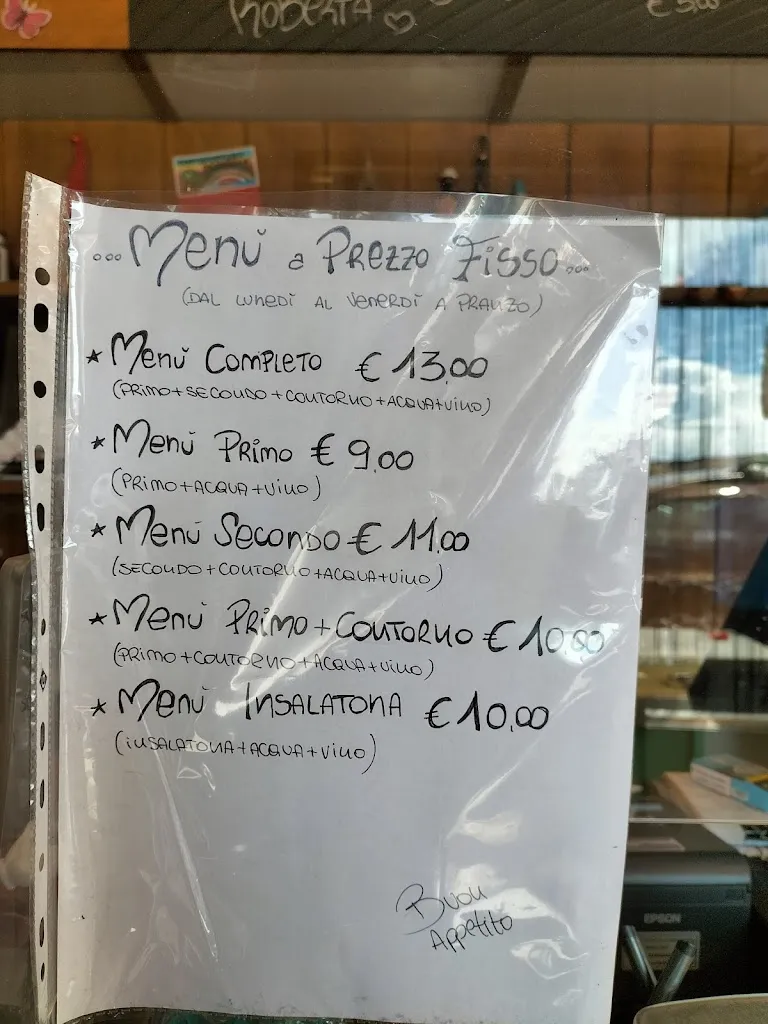 ROBERTA
€ 5,00
...Menù a Prezzo Fisso...
(DAL LUNEDÌ AL VENERDÌ A PRANZO)
* Menù Completo € 13,00
(PRIMO+SECONDO+CONTORNO+ACQUA+VINO)
* Menù Primo € 9,00
(PRIMO+ACQUA+VINO)
* Menù Secondo € 11,00
(SECONDO+CONTORNO+ACQUA+VINO)
* Menù Primo+Contorno € 10,50
(PRIMO+CONTORNO+ACQUA+VINO)
* Menù Insalatona € 10,00
(INSALATONA+ACQUA+VINO)
Buon
Appetito
EPSON